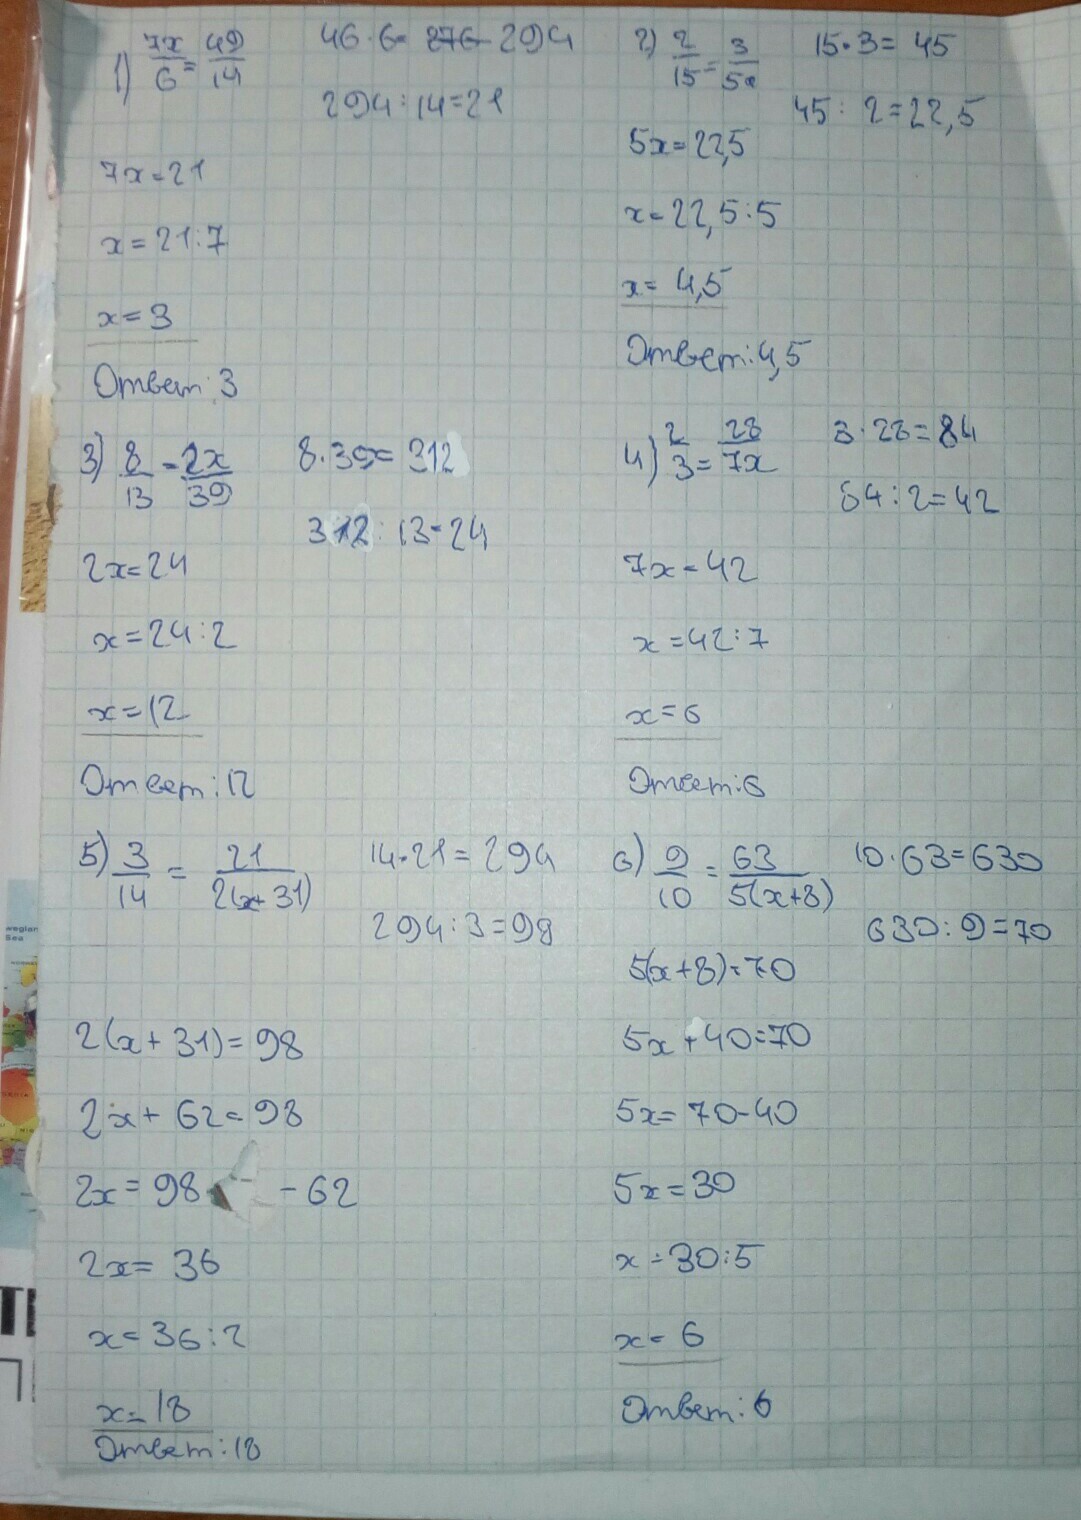 1) 7x/6 = 49/14
46·6= 276 294
294:14=21
7x=21
x=21:7
x=3
Ответ: 3
2) 2/15 = 3/5x
15·3=45
45:2=22,5
5x=22,5
x=22,5:5
x=4,5
Ответ: 4,5
3) 8/13 = 2x/39
8·39=312
312:13=24
2x=24
x=24:2
x=12
Ответ: 12
4) 2/3 = 28/7x
3·28=84
84:2=42
7x=42
x=42:7
x=6
Ответ: 6
5) 3/14 = 21/2(x+31)
14·21=294
294:3=98
2(x+31)=98
2x+62=98
2x=98 -62
2x=36
x=36:2
x=18
Ответ: 18
6) 9/10 = 63/5(x+8)
10·63=630
630:9=70
5(x+8)=70
5x+40=70
5x=70-40
5x=30
x=30:5
x=6
Ответ: 6